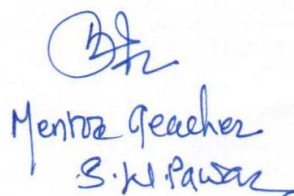 Mentor Teacher
S. W. Pawar